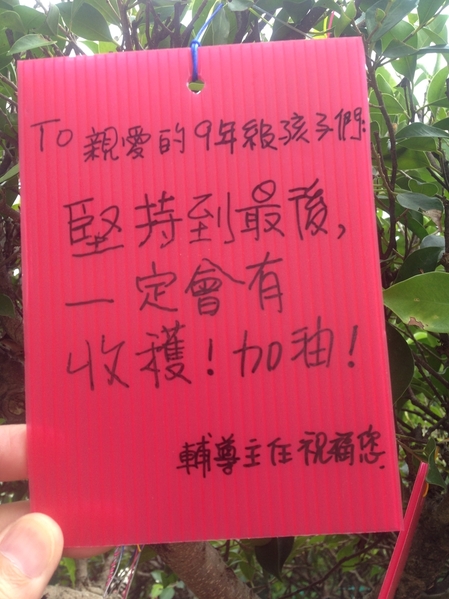 To 親愛的9年級孩子們:
堅持到最後,
一定會有
收穫!加油!
輔導主任祝福您